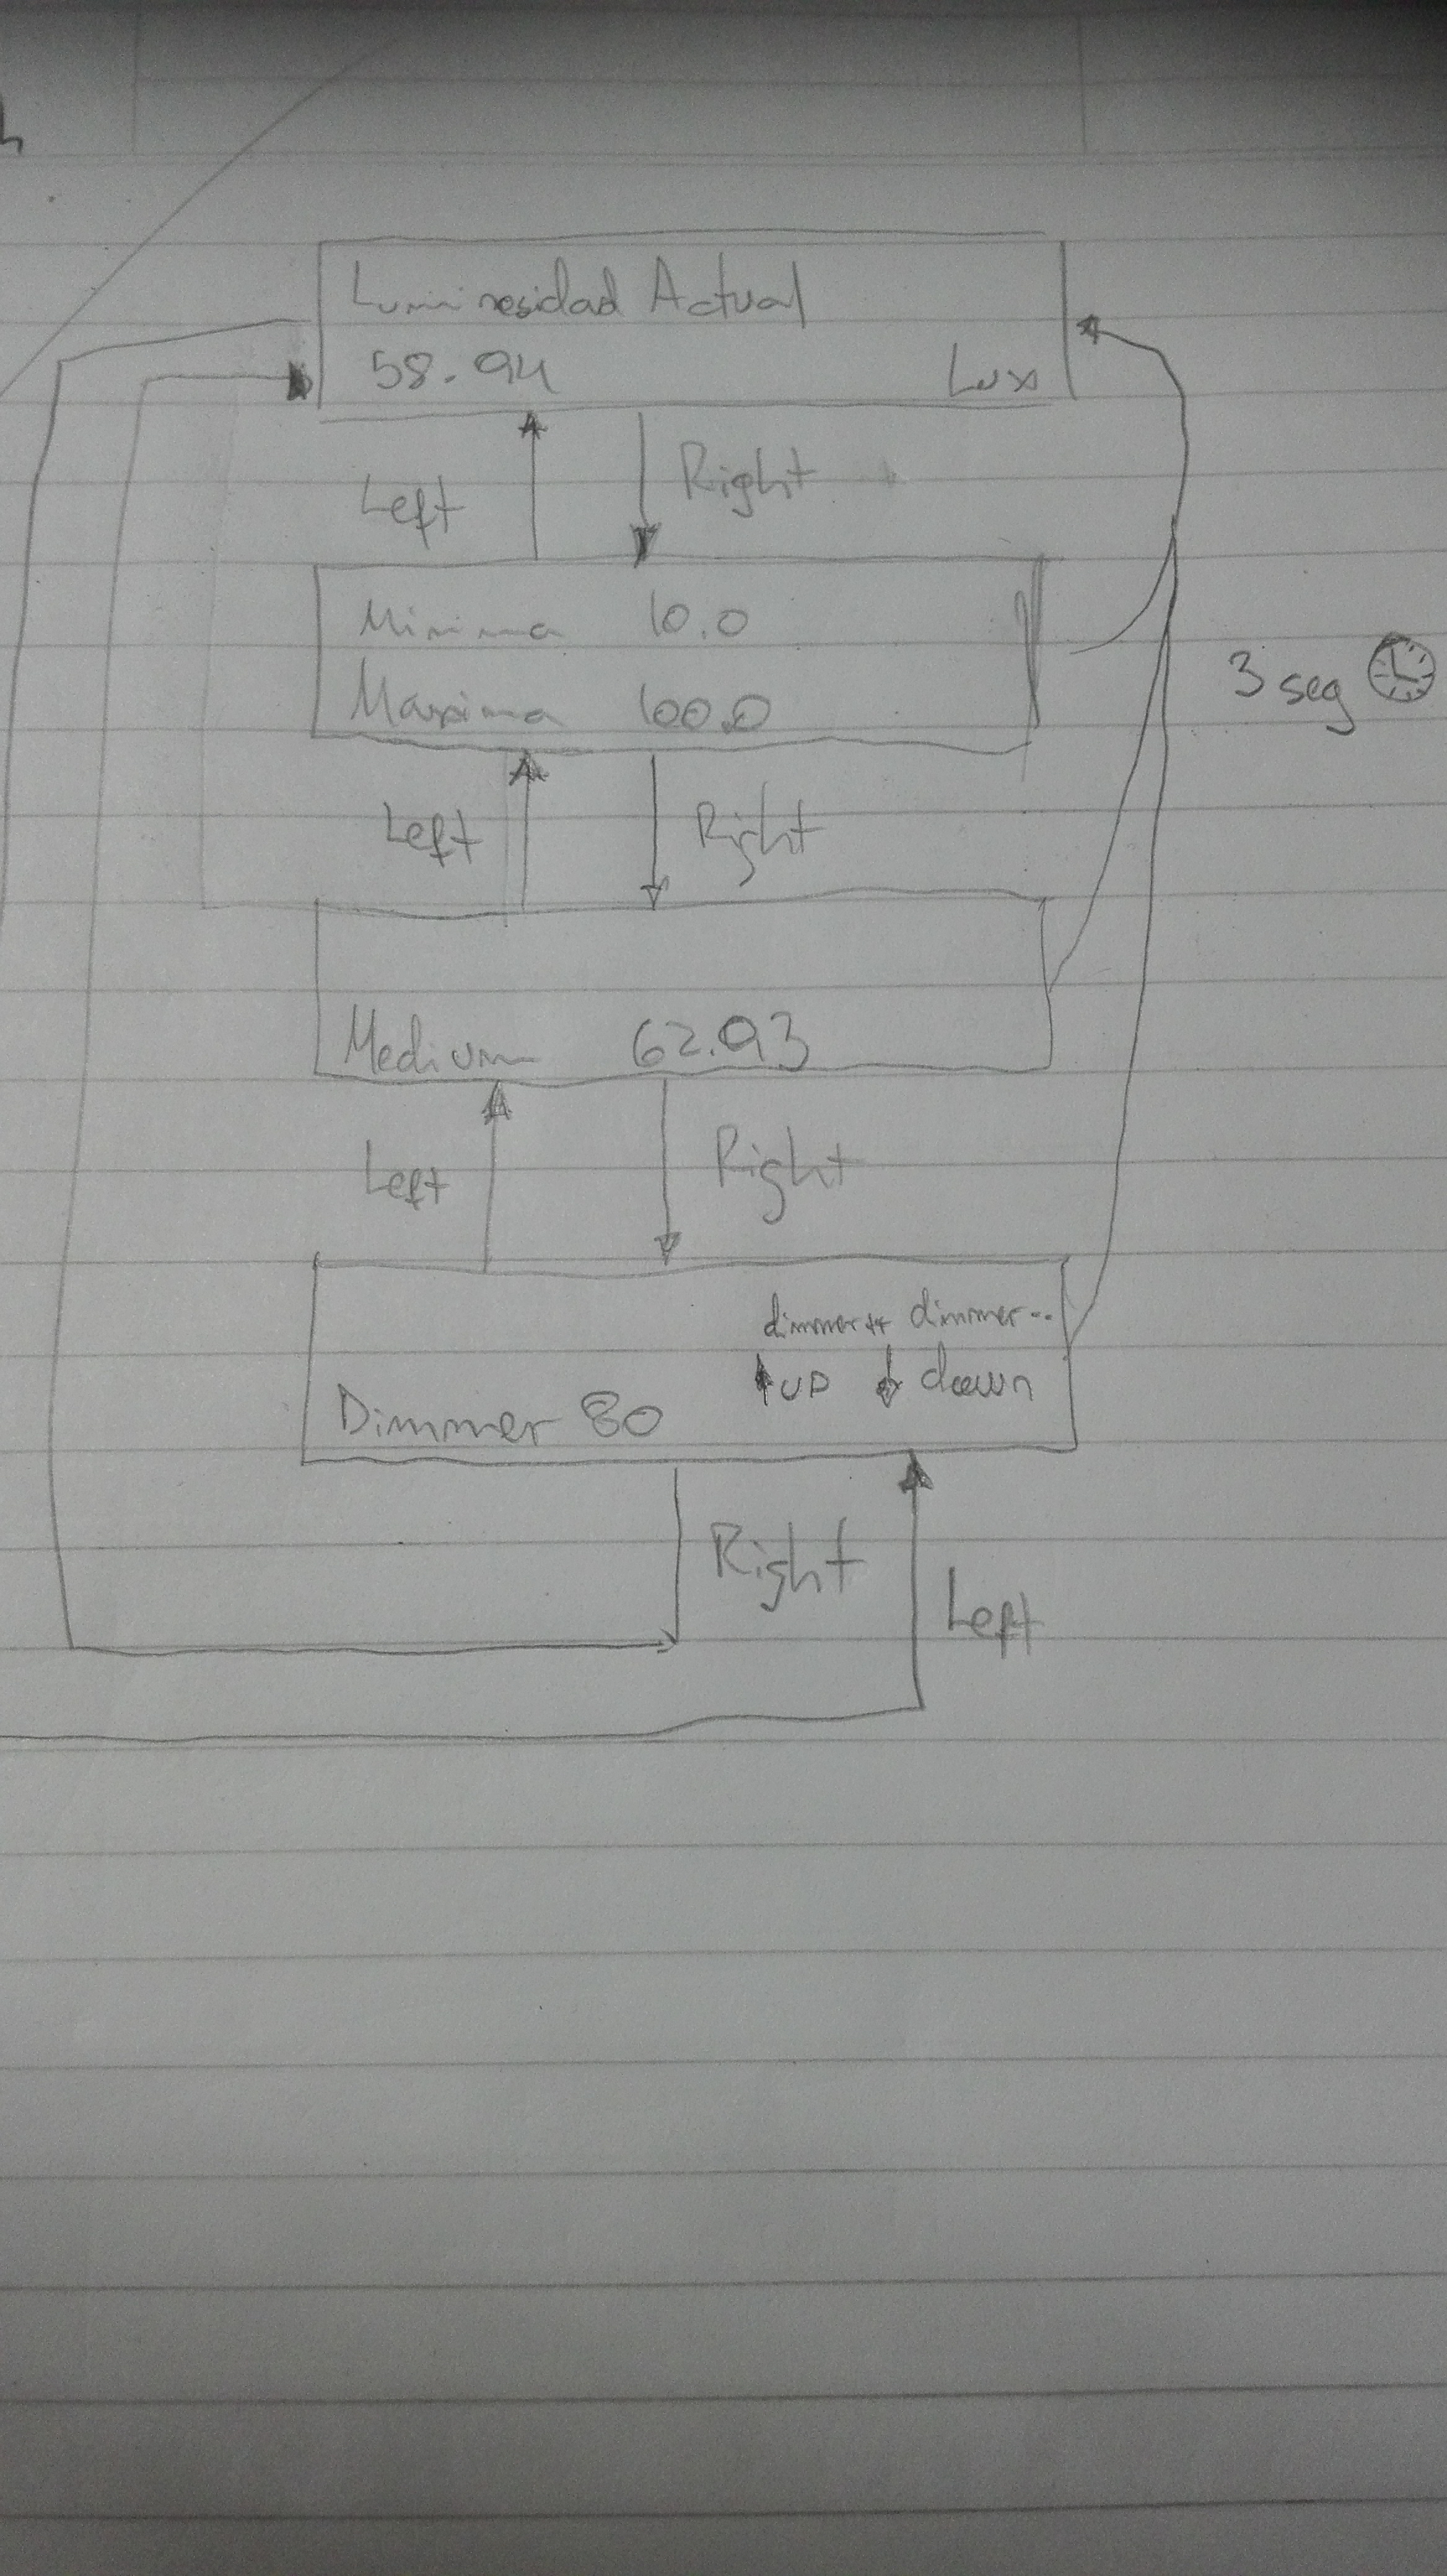 Luminosidad Actual
58.94 Lux
Left Right
Minima 10.0
Maxima 100.0
3 seg
Left Right
Medium 62.93
Left Right
dimmer++ dimmer--
up down
Dimmer 80
Right
Left